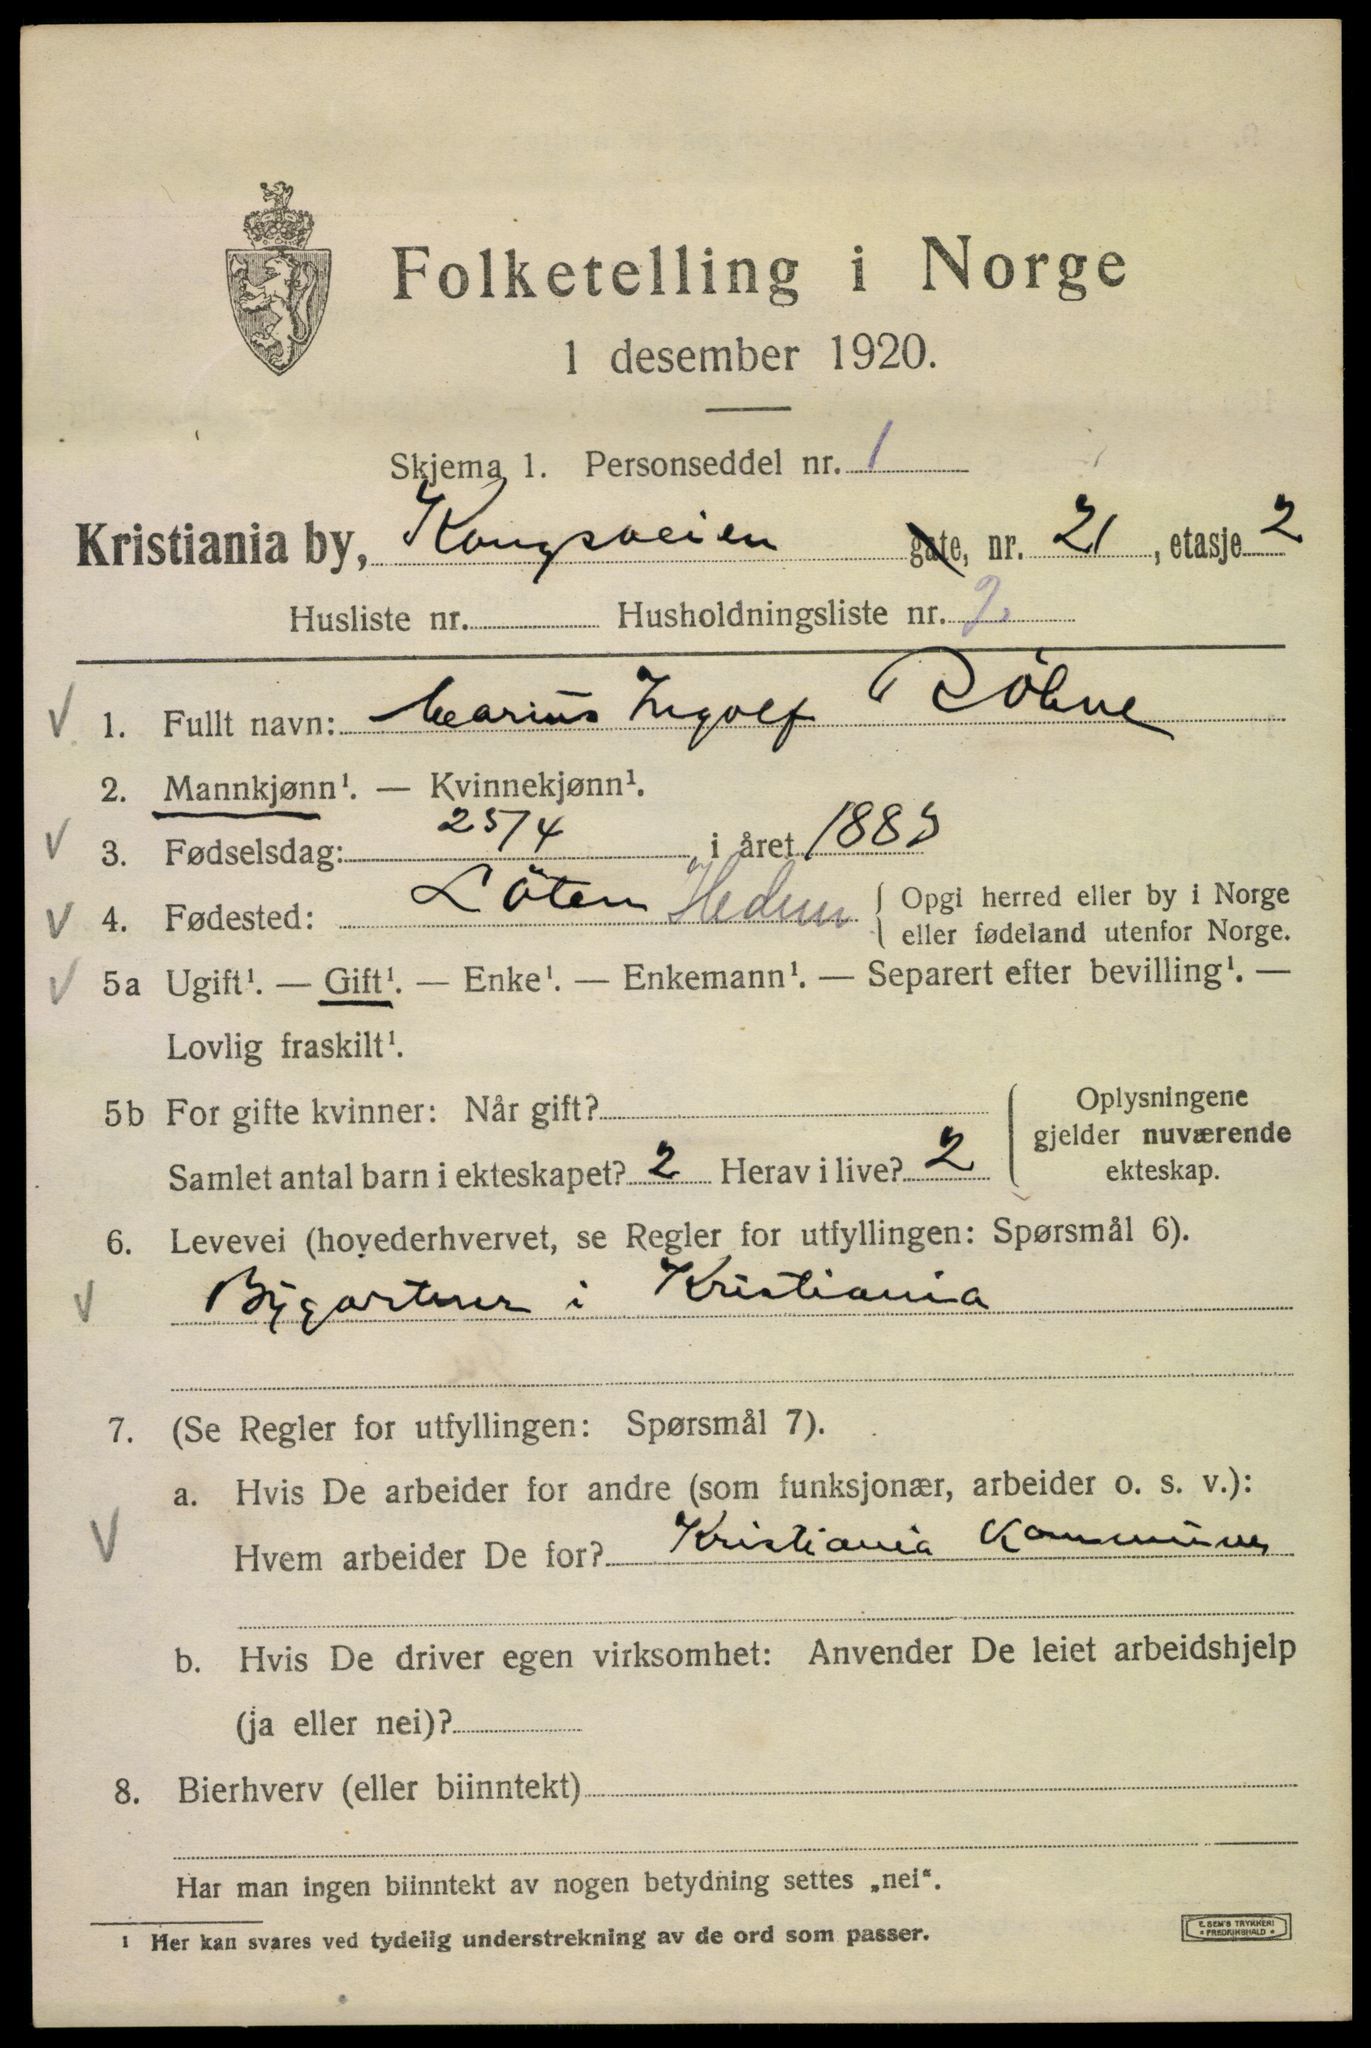 Folketelling i Norge
1 desember 1920.
Skjema 1. Personseddel nr. 1
Kristiania by, Kongsveien gate, nr. 21, etasje 2
Husliste nr. Husholdningsliste nr. 2.
1. Fullt navn: Marius Ingolf Röhne
2. Mannkjønn¹. — Kvinnekjønn¹.
3. Fødselsdag: 25/4 i året 1883
4. Fødested: Löten Hedm { Opgi herred eller by i Norge
eller fødeland utenfor Norge.
5a Ugift¹. — Gift¹. — Enke¹. — Enkemann¹. — Separert efter bevilling¹. —
Lovlig fraskilt¹.
5b For gifte kvinner: Når gift? Oplysningene
gjelder nuværende
Samlet antal barn i ekteskapet? 2 Herav i live? 2 ekteskap.
6. Levevei (hovederhvervet, se Regler for utfyllingen: Spørsmål 6).
Bygartner i Kristiania
7. (Se Regler for utfyllingen: Spørsmål 7).
a. Hvis De arbeider for andre (som funksjonær, arbeider o. s. v.):
Hvem arbeider De for? Kristiania Kommune
b. Hvis De driver egen virksomhet: Anvender De leiet arbeidshjelp
(ja eller nei)?
8. Bierhverv (eller biinntekt)
Har man ingen biinntekt av nogen betydning settes „nei“.
¹ Her kan svares ved tydelig understrekning av de ord som passer.
E. SEM'S TRYKKERI
* FREDRIKSHALD *